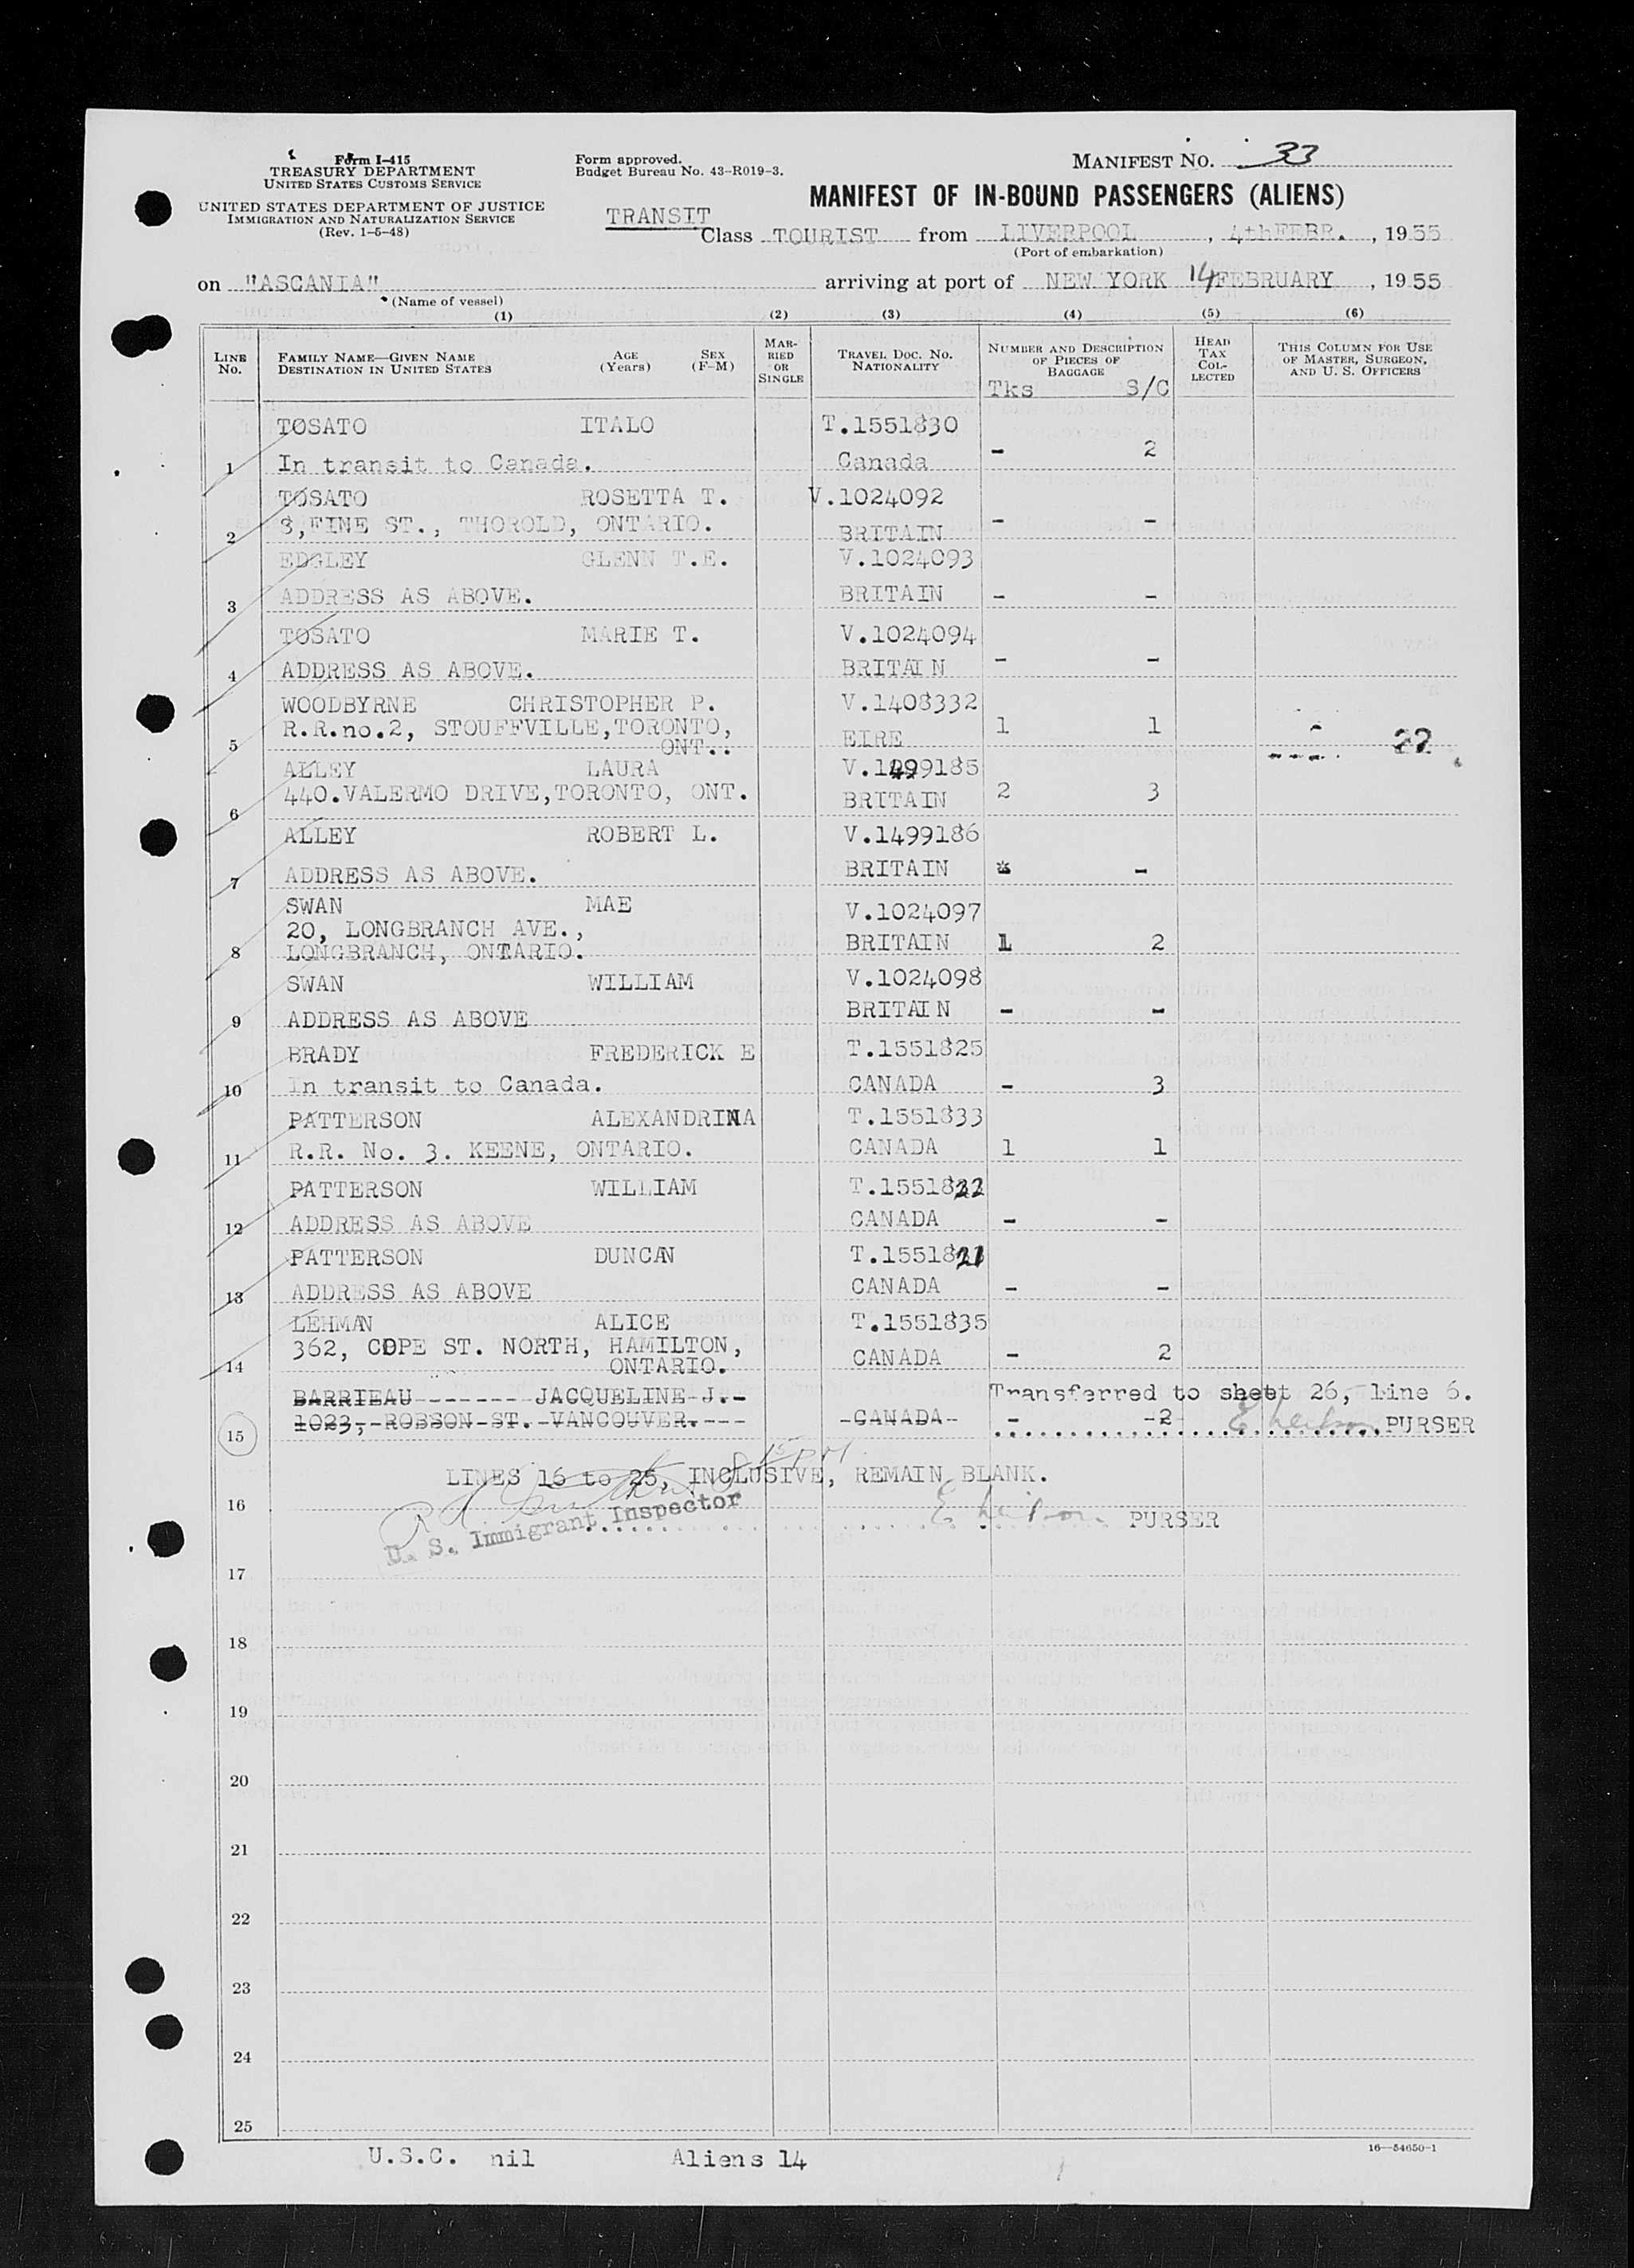 Form I-415
TREASURY DEPARTMENT
UNITED STATES CUSTOMS SERVICE
UNITED STATES DEPARTMENT OF JUSTICE
IMMIGRATION AND NATURALIZATION SERVICE
(Rev. 1-5-48)
Form approved.
Budget Bureau No. 43-R019-3.
MANIFEST NO. 33
MANIFEST OF IN-BOUND PASSENGERS (ALIENS)
TRANSIT
Class TOURIST from LIVERPOOL, 4thFEBR., 1955
(Port of embarkation)
on "ASCANIA" arriving at port of NEW YORK 14 FEBRUARY, 1955
(Name of vessel)
(1) (2) (3) (4) (5) (6)
LINE No.
FAMILY NAME—GIVEN NAME
DESTINATION IN UNITED STATES
AGE (Years)
SEX (F-M)
MARRIED OR SINGLE
TRAVEL DOC. NO.
NATIONALITY
NUMBER AND DESCRIPTION OF PIECES OF BAGGAGE
Tks S/C
HEAD TAX COLLECTED
THIS COLUMN FOR USE OF MASTER, SURGEON, AND U. S. OFFICERS
TOSATO ITALO T.1551830
1 In transit to Canada. Canada - 2
TOSATO ROSETTA T. V.1024092
2 8, PINE ST., THOROLD, ONTARIO. BRITAIN - -
EDGLEY GLENN T.E. V.1024093
3 ADDRESS AS ABOVE. BRITAIN - -
TOSATO MARIE T. V.1024094
4 ADDRESS AS ABOVE. BRITAIN - -
WOODBYRNE CHRISTOPHER P. V.1408332
5 R.R.no.2, STOUFFVILLE,TORONTO, ONT.. EIRE 1 1
ALLEY LAURA V.1499185
6 440.VALERMO DRIVE,TORONTO, ONT. BRITAIN 2 3
ALLEY ROBERT L. V.1499186
7 ADDRESS AS ABOVE. BRITAIN - -
SWAN MAE V.1024097
20, LONGBRANCH AVE.,
8 LONGBRANCH, ONTARIO. BRITAIN 1 2
SWAN WILLIAM V.1024098
9 ADDRESS AS ABOVE BRITAIN - -
BRADY FREDERICK E T.1551825
10 In transit to Canada. CANADA - 3
PATTERSON ALEXANDRINA T.1551833
11 R.R. No. 3. KEENE, ONTARIO. CANADA 1 1
PATTERSON WILLIAM T.1551822
12 ADDRESS AS ABOVE CANADA - -
PATTERSON DUNCAN T.1551821
13 ADDRESS AS ABOVE CANADA - -
LEHMAN ALICE T.1551835
14 362, COPE ST. NORTH, HAMILTON, ONTARIO. CANADA - 2
BARRIEAU ------- JACQUELINE-J.- Transferred to sheet 26, line 6.
15 1023,-ROBSON-ST.-VANCOUVER.--- -CANADA- - -2- PURSER
LINES 16 to 25, INCLUSIVE, REMAIN BLANK.
16 U. S. Immigrant Inspector PURSER
17
18
19
20
21
22
23
24
25
U.S.C. nil Aliens 14
16—54650-1